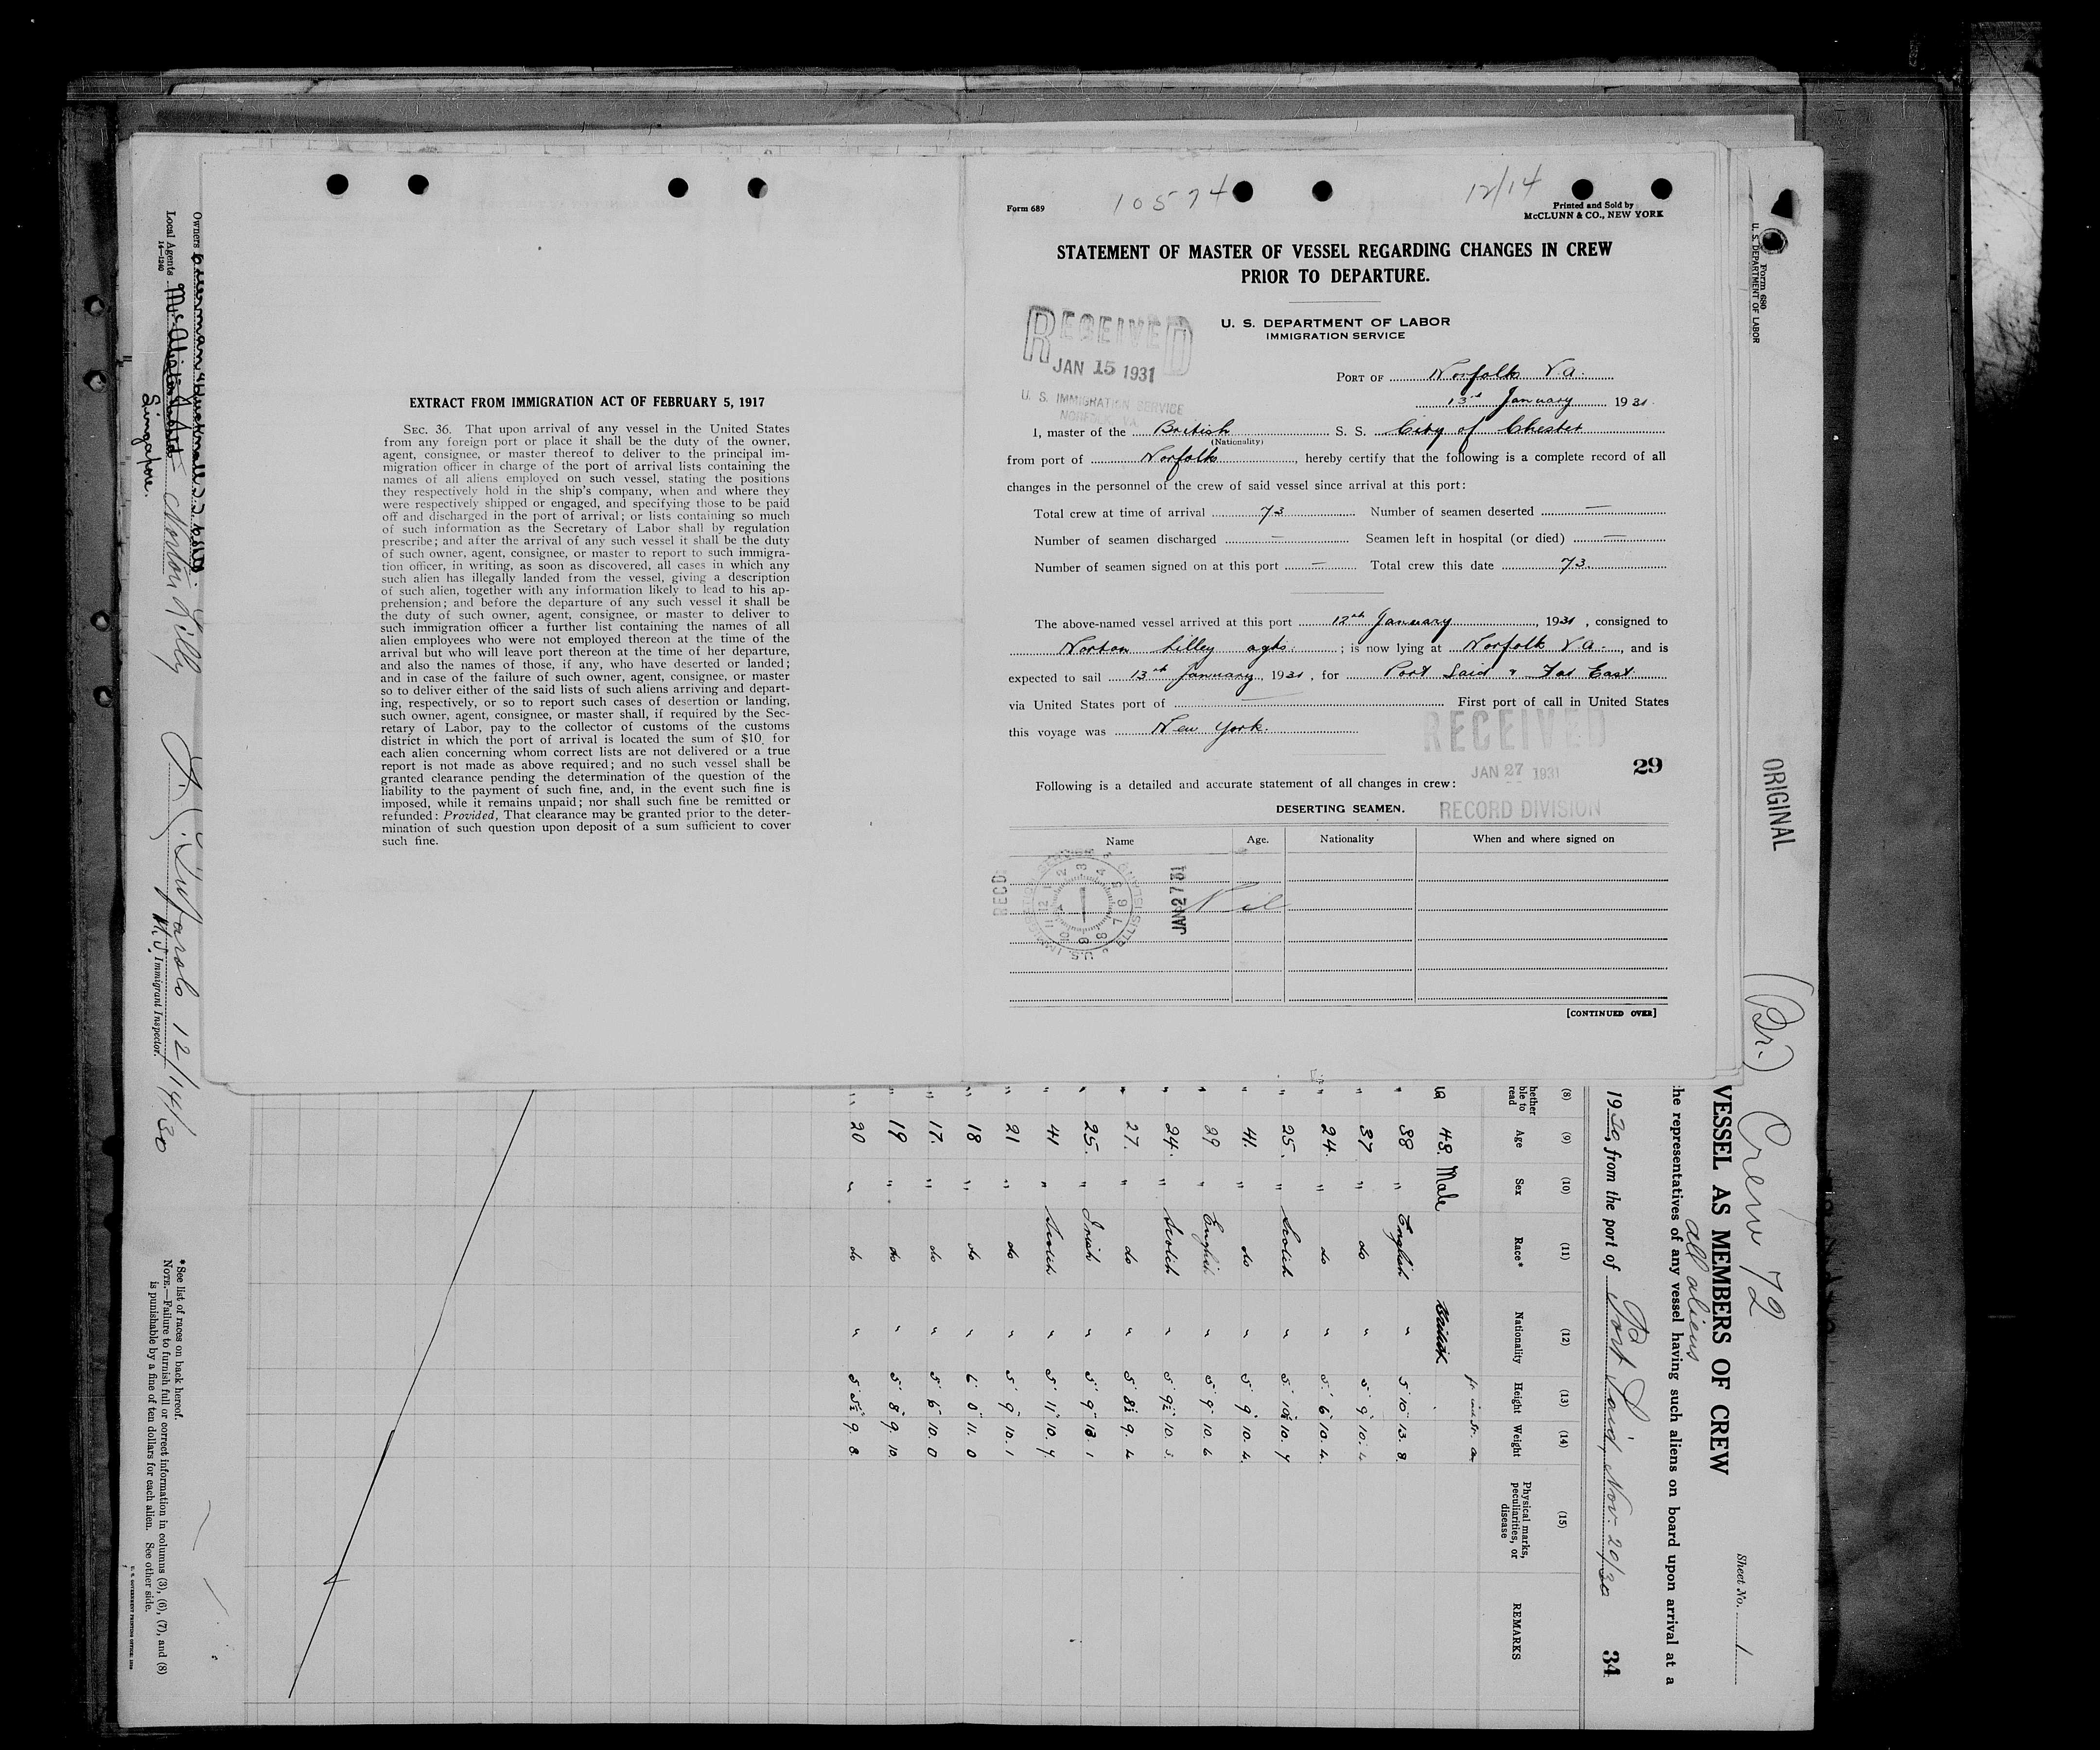 EXTRACT FROM IMMIGRATION ACT OF FEBRUARY 5, 1917
SEC. 36. That upon arrival of any vessel in the United States
from any foreign port or place it shall be the duty of the owner,
agent, consignee, or master thereof to deliver to the principal im-
migration officer in charge of the port of arrival lists containing the
names of all aliens employed on such vessel, stating the positions
they respectively hold in the ship's company, when and where they
were respectively shipped or engaged, and specifying those to be paid
off and discharged in the port of arrival; or lists containing so much
of such information as the Secretary of Labor shall by regulation
prescribe; and after the arrival of any such vessel it shall be the duty
of such owner, agent, consignee, or master to report to such immigra-
tion officer, in writing, as soon as discovered, all cases in which any
such alien has illegally landed from the vessel, giving a description
of such alien, together with any information likely to lead to his ap-
prehension; and before the departure of any such vessel it shall be
the duty of such owner, agent, consignee, or master to deliver to
such immigration officer a further list containing the names of all
alien employees who were not employed thereon at the time of the
arrival but who will leave port thereon at the time of her departure,
and also the names of those, if any, who have deserted or landed;
and in case of the failure of such owner, agent, consignee, or master
so to deliver either of the said lists of such aliens arriving and depart-
ing, respectively, or so to report such cases of desertion or landing,
such owner, agent, consignee, or master shall, if required by the Sec-
retary of Labor, pay to the collector of customs of the customs
district in which the port of arrival is located the sum of $10 for
each alien concerning whom correct lists are not delivered or a true
report is not made as above required; and no such vessel shall be
granted clearance pending the determination of the question of the
liability to the payment of such fine, and, in the event such fine is
imposed, while it remains unpaid; nor shall such fine be remitted or
refunded: Provided, That clearance may be granted prior to the deter-
mination of such question upon deposit of a sum sufficient to cover
such fine.
10574 12/14
Form 689
Printed and Sold by
McCLUNN & CO., NEW YORK
STATEMENT OF MASTER OF VESSEL REGARDING CHANGES IN CREW
PRIOR TO DEPARTURE.
U. S. DEPARTMENT OF LABOR
IMMIGRATION SERVICE
RECEIVED
JAN 15 1931
U. S. IMMIGRATION SERVICE
NORFOLK, VA.
PORT OF Norfolk Va.
13th January 1931
I, master of the British S. S. City of Chester
(Nationality)
from port of Norfolk, hereby certify that the following is a complete record of all
changes in the personnel of the crew of said vessel since arrival at this port:
Total crew at time of arrival 73 Number of seamen deserted —
Number of seamen discharged — Seamen left in hospital (or died) —
Number of seamen signed on at this port — Total crew this date 73.
The above-named vessel arrived at this port 12th January, 1931, consigned to
Norton Lilley agts.; is now lying at Norfolk Va., and is
expected to sail 13th January, 1931, for Port Said & Far East
via United States port of — First port of call in United States
this voyage was New York.
RECEIVED
JAN 27 1931
RECORD DIVISION
29
Following is a detailed and accurate statement of all changes in crew:
DESERTING SEAMEN.
Name Age. Nationality When and where signed on
RECD:
JAN 27 31
Nil
[CONTINUED OVER]
Form 680
U. S. DEPARTMENT OF LABOR
ORIGINAL
(Br.) Crew 72
Sheet No. 1
VESSEL AS MEMBERS OF CREW
all aliens
he representatives of any vessel having such aliens on board upon arrival at a
1930, from the port of Port Said, Nov. 20/30
34
(8) (9) (10) (11) (12) (13) (14) (15)
hether ble to read Age Sex Race* Nationality Height Weight Physical marks, peculiarities, or disease REMARKS
48. Male British
" 38 " English " 5' 10" 13. 8.
" 37 " do " 5' 9" 10. 4
" 24. " do " 5' 6" 10. 4.
" 25. " Scotch "
" 41. " do " 5' 9" 10. 4.
" 29 " English " 5' 9" 10. 6
" 24. " Scotch " 5' 9½" 10. 3.
" 27. " do " 5' 8½" 9. 4
" 25. " Irish " 5' 9"
" 41 " Scotch " 5' 11" 10. 7.
" 21 " do " 5' 9" 10. 1
" 18 " do " 6' 0" 11. 0
" 17. " do " 5' 6" 10. 0
" 19 " do " 5' 8" 9. 10.
" 20 " do " 5' 5½" 9. 8.
Owners
Local Agents Norton Lilly
14—1240
Singapore.
12/14/30
Immigrant Inspector.
* See list of races on back hereof.
NOTE.—Failure to furnish full or correct information in columns (3), (6), (7), and (8)
is punishable by a fine of ten dollars for each alien. See other side.
U. S. GOVERNMENT PRINTING OFFICE